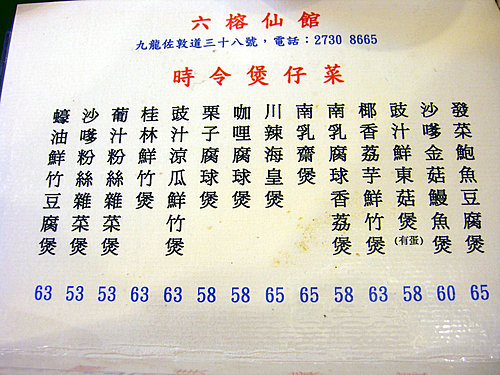 六榕仙館
九龍佐敦道三十八號，電話：2730 8665
時令煲仔菜
發菜鮑魚豆腐煲 65
沙嗲金菇鰻魚煲 60
豉汁鮮東菇煲(有蛋) 58
椰香荔芋鮮竹煲 63
南乳腐球香荔煲 58
南乳齋煲 65
川辣海皇煲 65
咖哩腐球煲 58
栗子腐球煲 58
豉汁涼瓜鮮竹煲 63
桂林鮮竹煲 63
葡汁粉絲雜菜煲 53
沙嗲粉絲雜菜煲 53
蠔油鮮竹豆腐煲 63